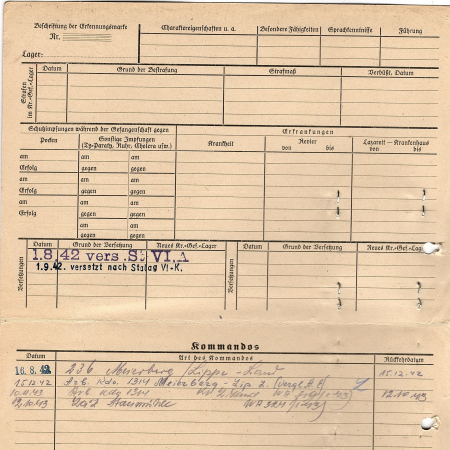 Beschriftung der Erkennungsmarke
Nr.
Lager:
Charaktereigenschaften u. a.
Besondere Fähigkeiten
Sprachkenntnisse
Führung
Strafen im Kr.-Gef.-Lager
Datum
Grund der Bestrafung
Strafmaß
Verbüßt, Datum
Schutzimpfungen während der Gefangenschaft gegen
Erkrankungen
Pocken
Sonstige Impfungen
(Ty-Paraty, Ruhr, Cholera usw.)
Krankheit
Revier
von bis
Lazarett — Krankenhaus
von bis
am am am
Erfolg gegen gegen
am am am
Erfolg gegen gegen
am am am
Erfolg gegen gegen
am am
gegen gegen
Versetzungen
Datum
Grund der Versetzung
Neues Kr.-Gef.-Lager
Versetzungen
Datum
Grund der Versetzung
Neues Kr.-Gef.-Lager
1.8.42 vers. St. VI.A
1.9.42. versetzt nach Stalag VI-K.
Kommandos
Datum
Art des Kommandos
Rückkehrdatum
16.8.42 236 Meierberg /Lippe-Land 15.12.42
15.12.42 Arb. Kdo. 1314
1314 12.10.43
12.10.43 Staumühle